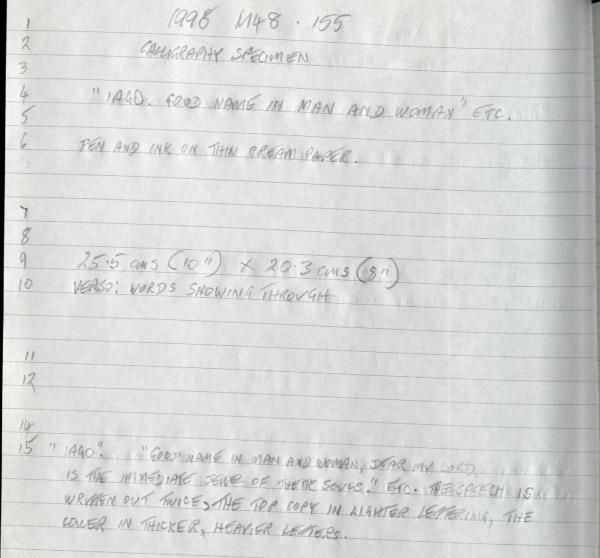 1 1998 M48.155
2 CALLIGRAPHY SPECIMEN
3
4 "IAGO. GOOD NAME IN MAN AND WOMAN" ETC.
5
6 PEN AND INK ON THIN CREAM PAPER.
7
8
9 25.5 cms (10") X 20.3 cms (8")
10 VERSO: WORDS SHOWING THROUGH.
11
12
14
15 "IAGO". "GOOD NAME IN MAN AND WOMAN, DEAR MY LORD
IS THE IMMEDIATE JEWEL OF THEIR SOULS." ETC. THE SPEECH IS
WRITTEN OUT TWICE, THE TOP COPY IN LIGHTER LETTERING, THE
LOWER IN THICKER, HEAVIER LETTERS.